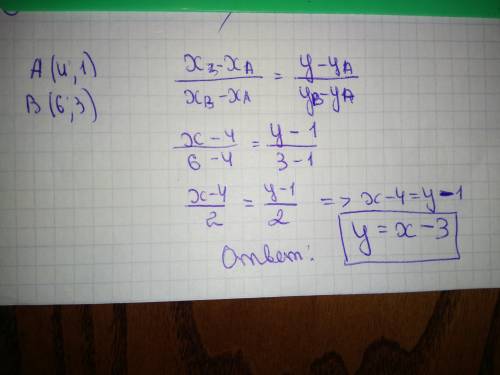 A(4;1)
B(6;3)
(x_B-x_A)/(x_B-x_A) = (y-y_A)/(y_B-y_A)
(x-4)/(6-4) = (y-1)/(3-1)
(x-4)/2 = (y-1)/2 => x-4=y-1
y=x-3
Ответ: